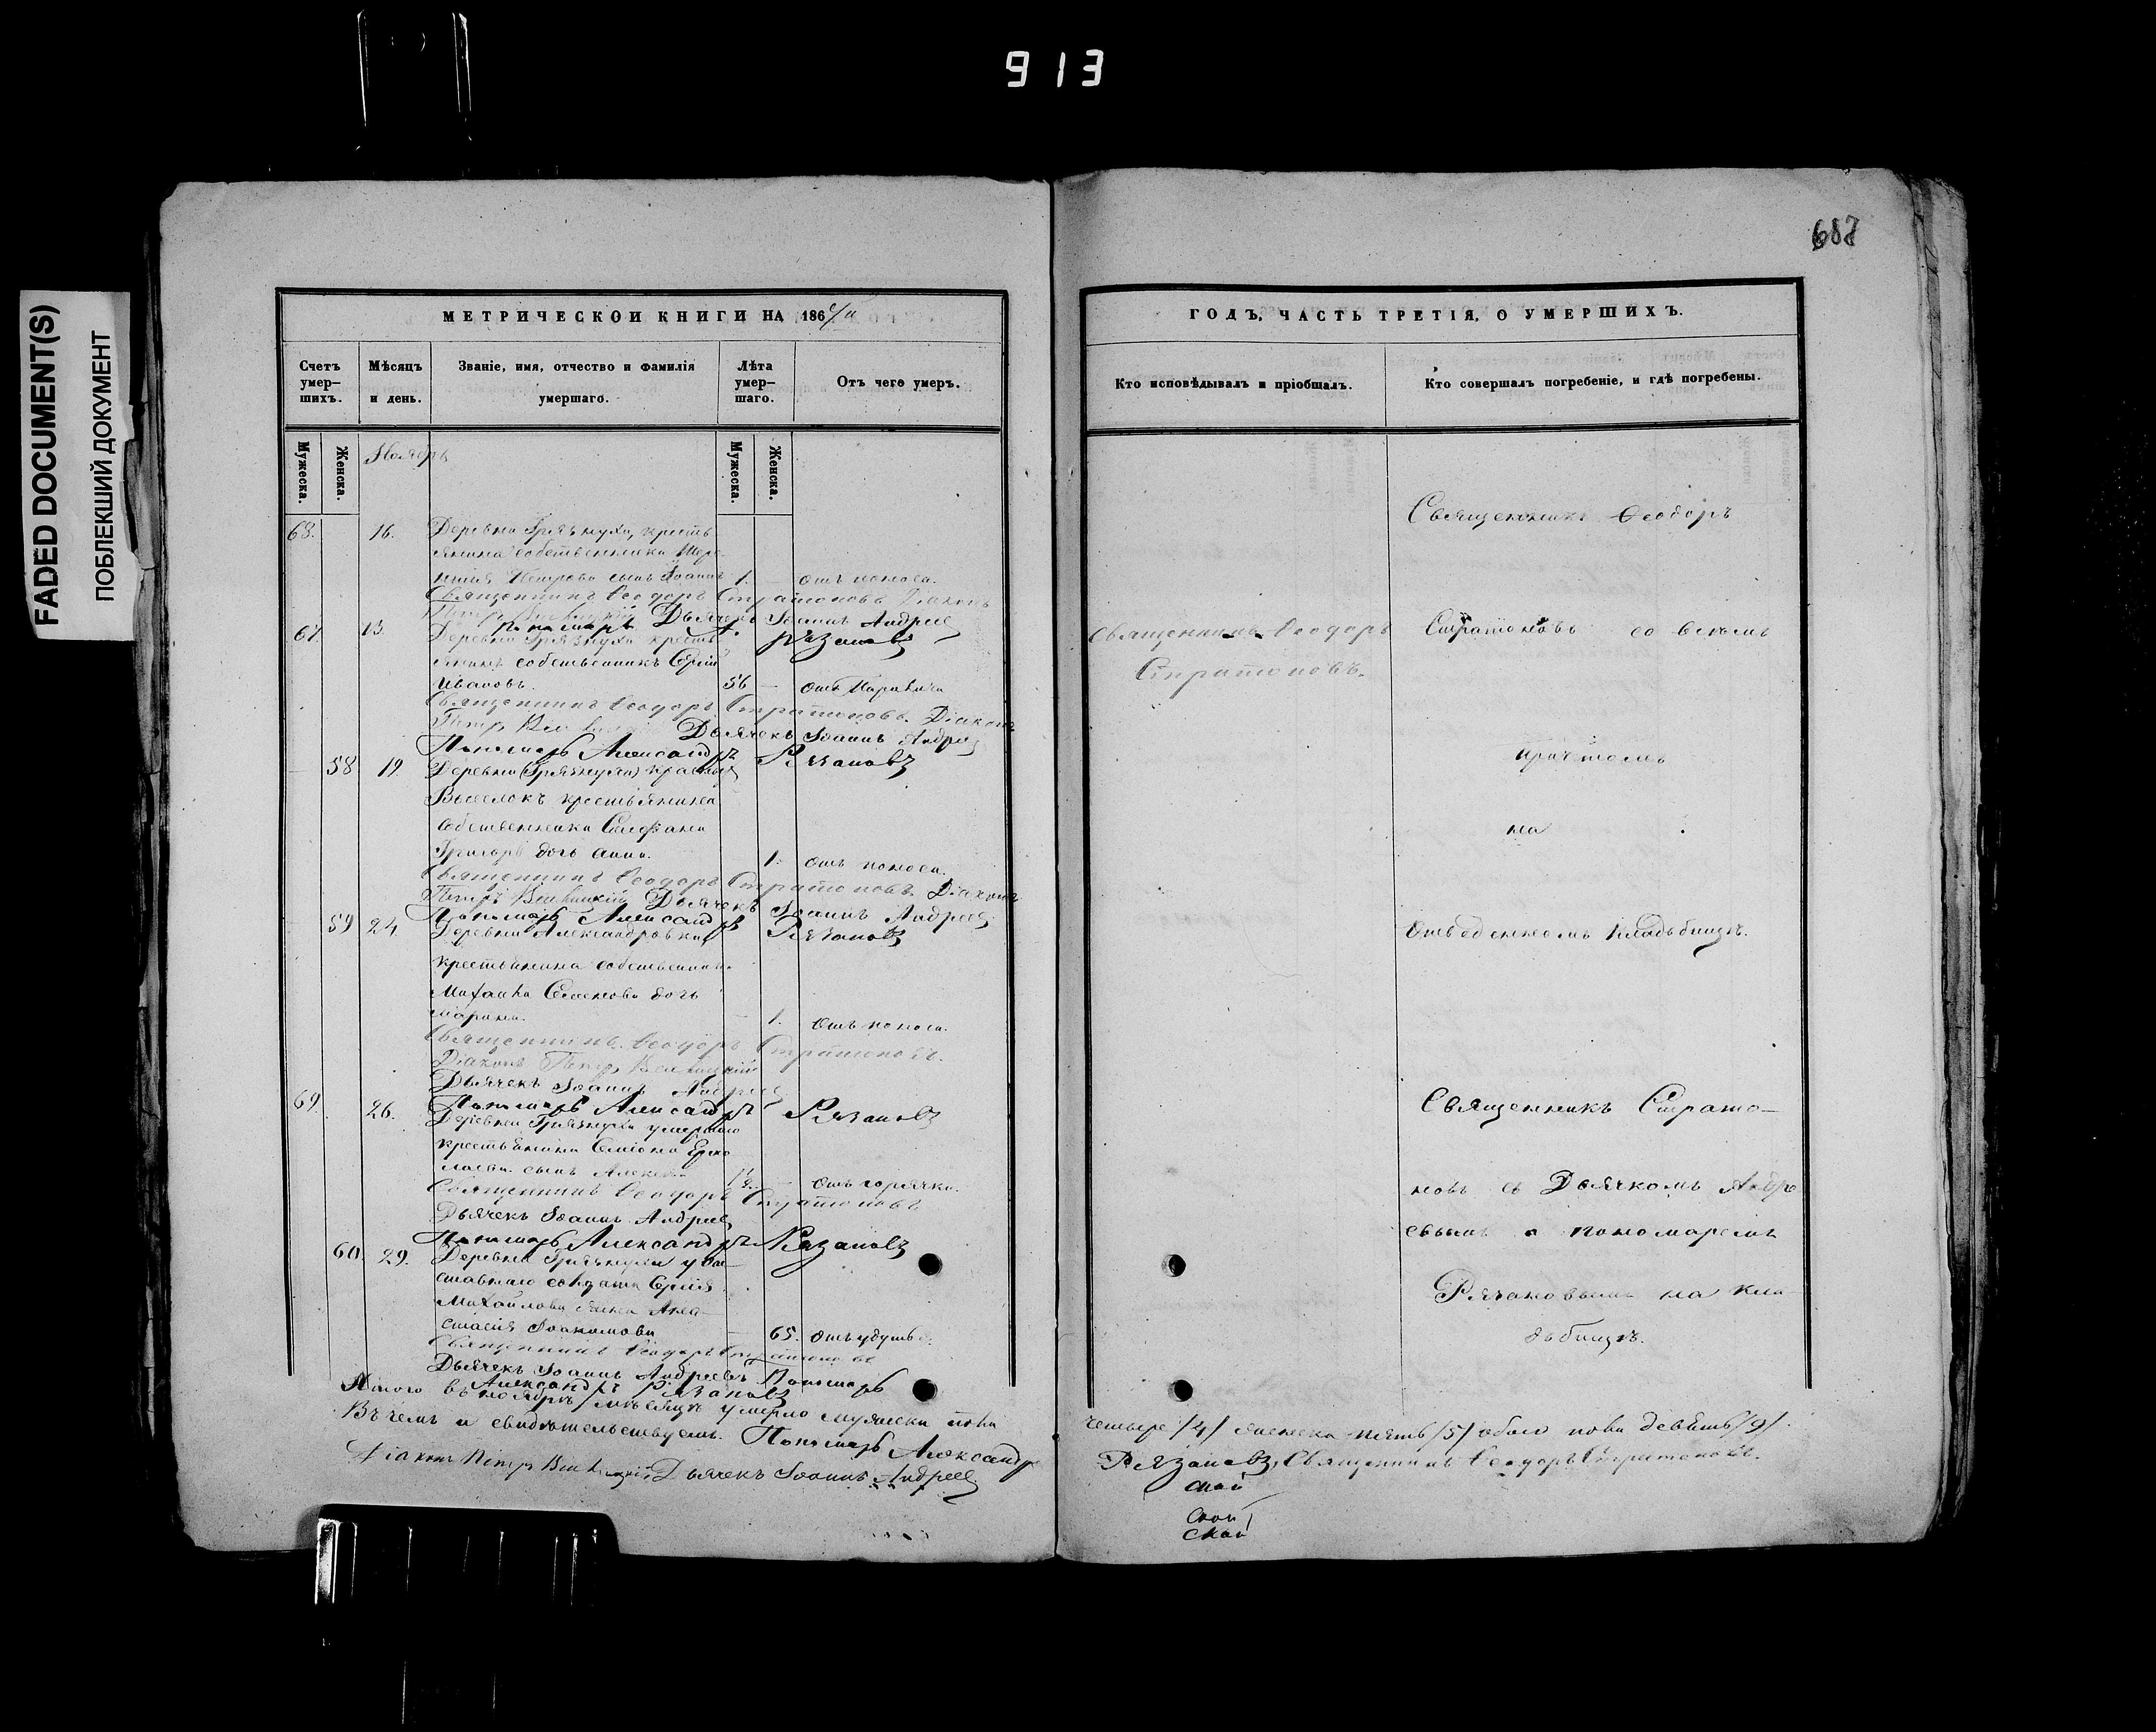 913
FADED DOCUMENT(S)
ПОБЛЕКШИЙ ДОКУМЕНТ
МЕТРИЧЕСКОЙ КНИГИ НА 186
Счетъ умер-шихъ.
Мѣсяцъ и день.
Званіе, имя, отчество и фамилія умершаго.
Лѣта умер-шаго.
Отъ чего умеръ.
Мужеска.
Женска.
Ноябрь
Мужеска.
Женска.
68. 16. Деревни Грязнухи, кресть
янина собственника
Петрова сынъ Іоаннъ 1. — отъ поноса.
Священникъ Ѳеодоръ Стратоновъ Діаконъ
Петръ Дьячекъ Іоаннъ Андреев
Пономарь Рязановъ
67 13. Деревни Грязнухи кресть
янинъ собственникъ Сергій
Ивановъ. 56 — отъ
Священникъ Ѳеодоръ Стратоновъ. Діаконъ
Петръ Дьячекъ Іоаннъ Андреев
Пономарь Александръ Рязановъ
58 19 Деревни (Грязнухи) Красный
Выселокъ крестьянина
собственника Стефана
Григорь дочь Анна. 1. отъ поноса.
Священникъ Ѳеодоръ Стратоновъ. Діаконъ
Петръ Дьячекъ Іоаннъ Андреев
Пономарь Александръ Рязановъ
59 24 Деревни Александровки
крестьянина собственник
Михаила Семенова дочь
Марина. 1. отъ поноса.
Священникъ Ѳеодоръ Стратоновъ.
Діаконъ Петръ
Дьячекъ Іоаннъ Андреев
69 26. Пономарь Александръ Рязановъ
Деревни Грязнухи умершаго
крестьянина Симіона Ермо
лаева сынъ Алексей — отъ горячки.
Священникъ Ѳеодоръ Стратоновъ
Дьячекъ Іоаннъ Андреев
Пономарь Александръ Рязановъ
60. 29. Деревни Грязнухи
ставнаго солдата Сергія
Михайлова жена Ана-
стасія Іоакимова — 65. отъ удушья
Священникъ Ѳеодоръ Стратоновъ
Дьячекъ Іоаннъ Андреевъ Пономарь
Александръ Рязановъ
Итого въ ноябрѣ мѣсяцѣ умерло мужеска пола
Въ чемъ и свидѣтельствуемъ. Пономарь Александръ
Діаконъ Петръ Дьячекъ Іоаннъ Андреев
687
ГОДЪ, ЧАСТЬ ТРЕТІЯ, О УМЕРШИХЪ.
Кто исповѣдывалъ и пріобщалъ.
Кто совершалъ погребеніе, и гдѣ погребены.
Священникъ Ѳеодоръ
Священникъ Ѳеодоръ Стратоновъ со всемъ
Стратоновъ.
причтомъ
на
отведенномъ кладбищѣ.
Священникъ Страто-
новъ съ Дьячкомъ Андре
евымъ и пономаремъ
Рязановымъ на кла
дбищѣ.
четыре /4/ женска пять /5/ обоего пола девять /9/.
Рязановъ, Священникъ Ѳеодоръ Стратоновъ.
ской
ской
ской